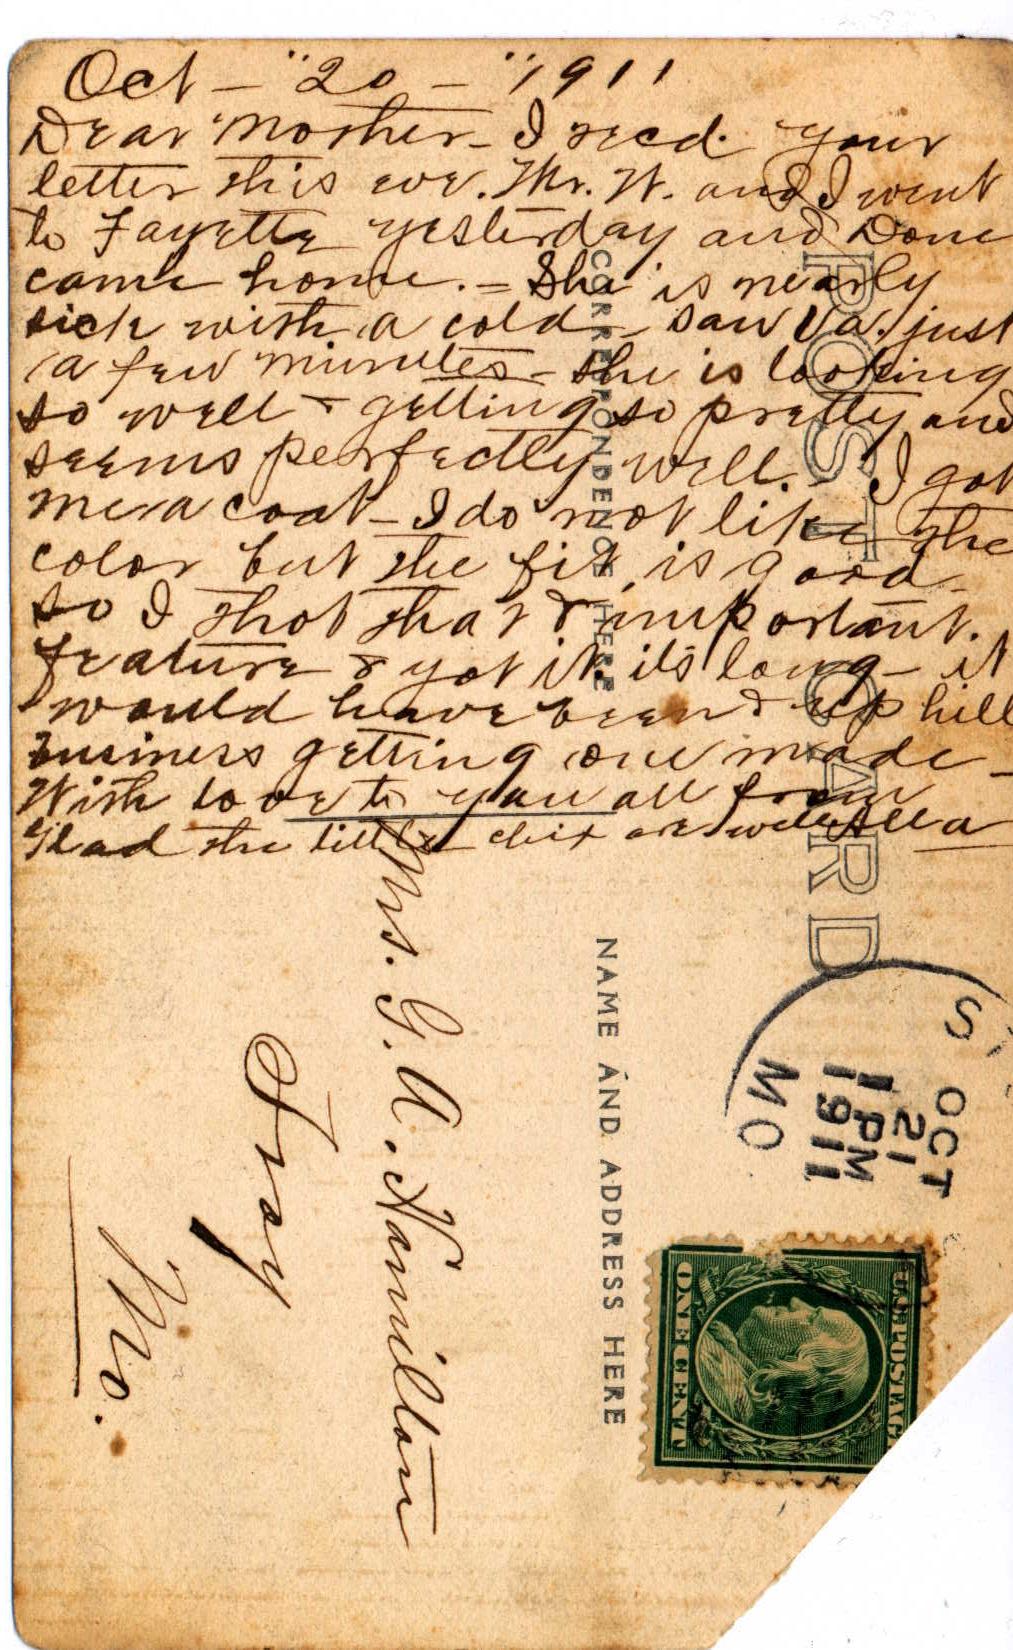 Oct - "20 - "1911
Dear Mother - I recd. your
letter this eve. Mr. W. and I went
to Fayette yesterday and Done
came home. - She is nearly
sick with a cold - saw Va. just
a few minutes - She is looking
so well - getting so pretty and
seems perfectly well. I got
me a coat - I do not like the
color but the fit is good
so I thot that & important.
feature & got it. its long - it
would have been & up hill
business getting one made -
With love to you all from
Glad the little chix are well
CORRESPONDENCE HERE
POST CARD
NAME AND ADDRESS HERE
Mrs. G. A. Hamilton
Troy
Mo.
OCT
21
11 PM
1911
MO
U.S. POSTAGE
ONE CENT